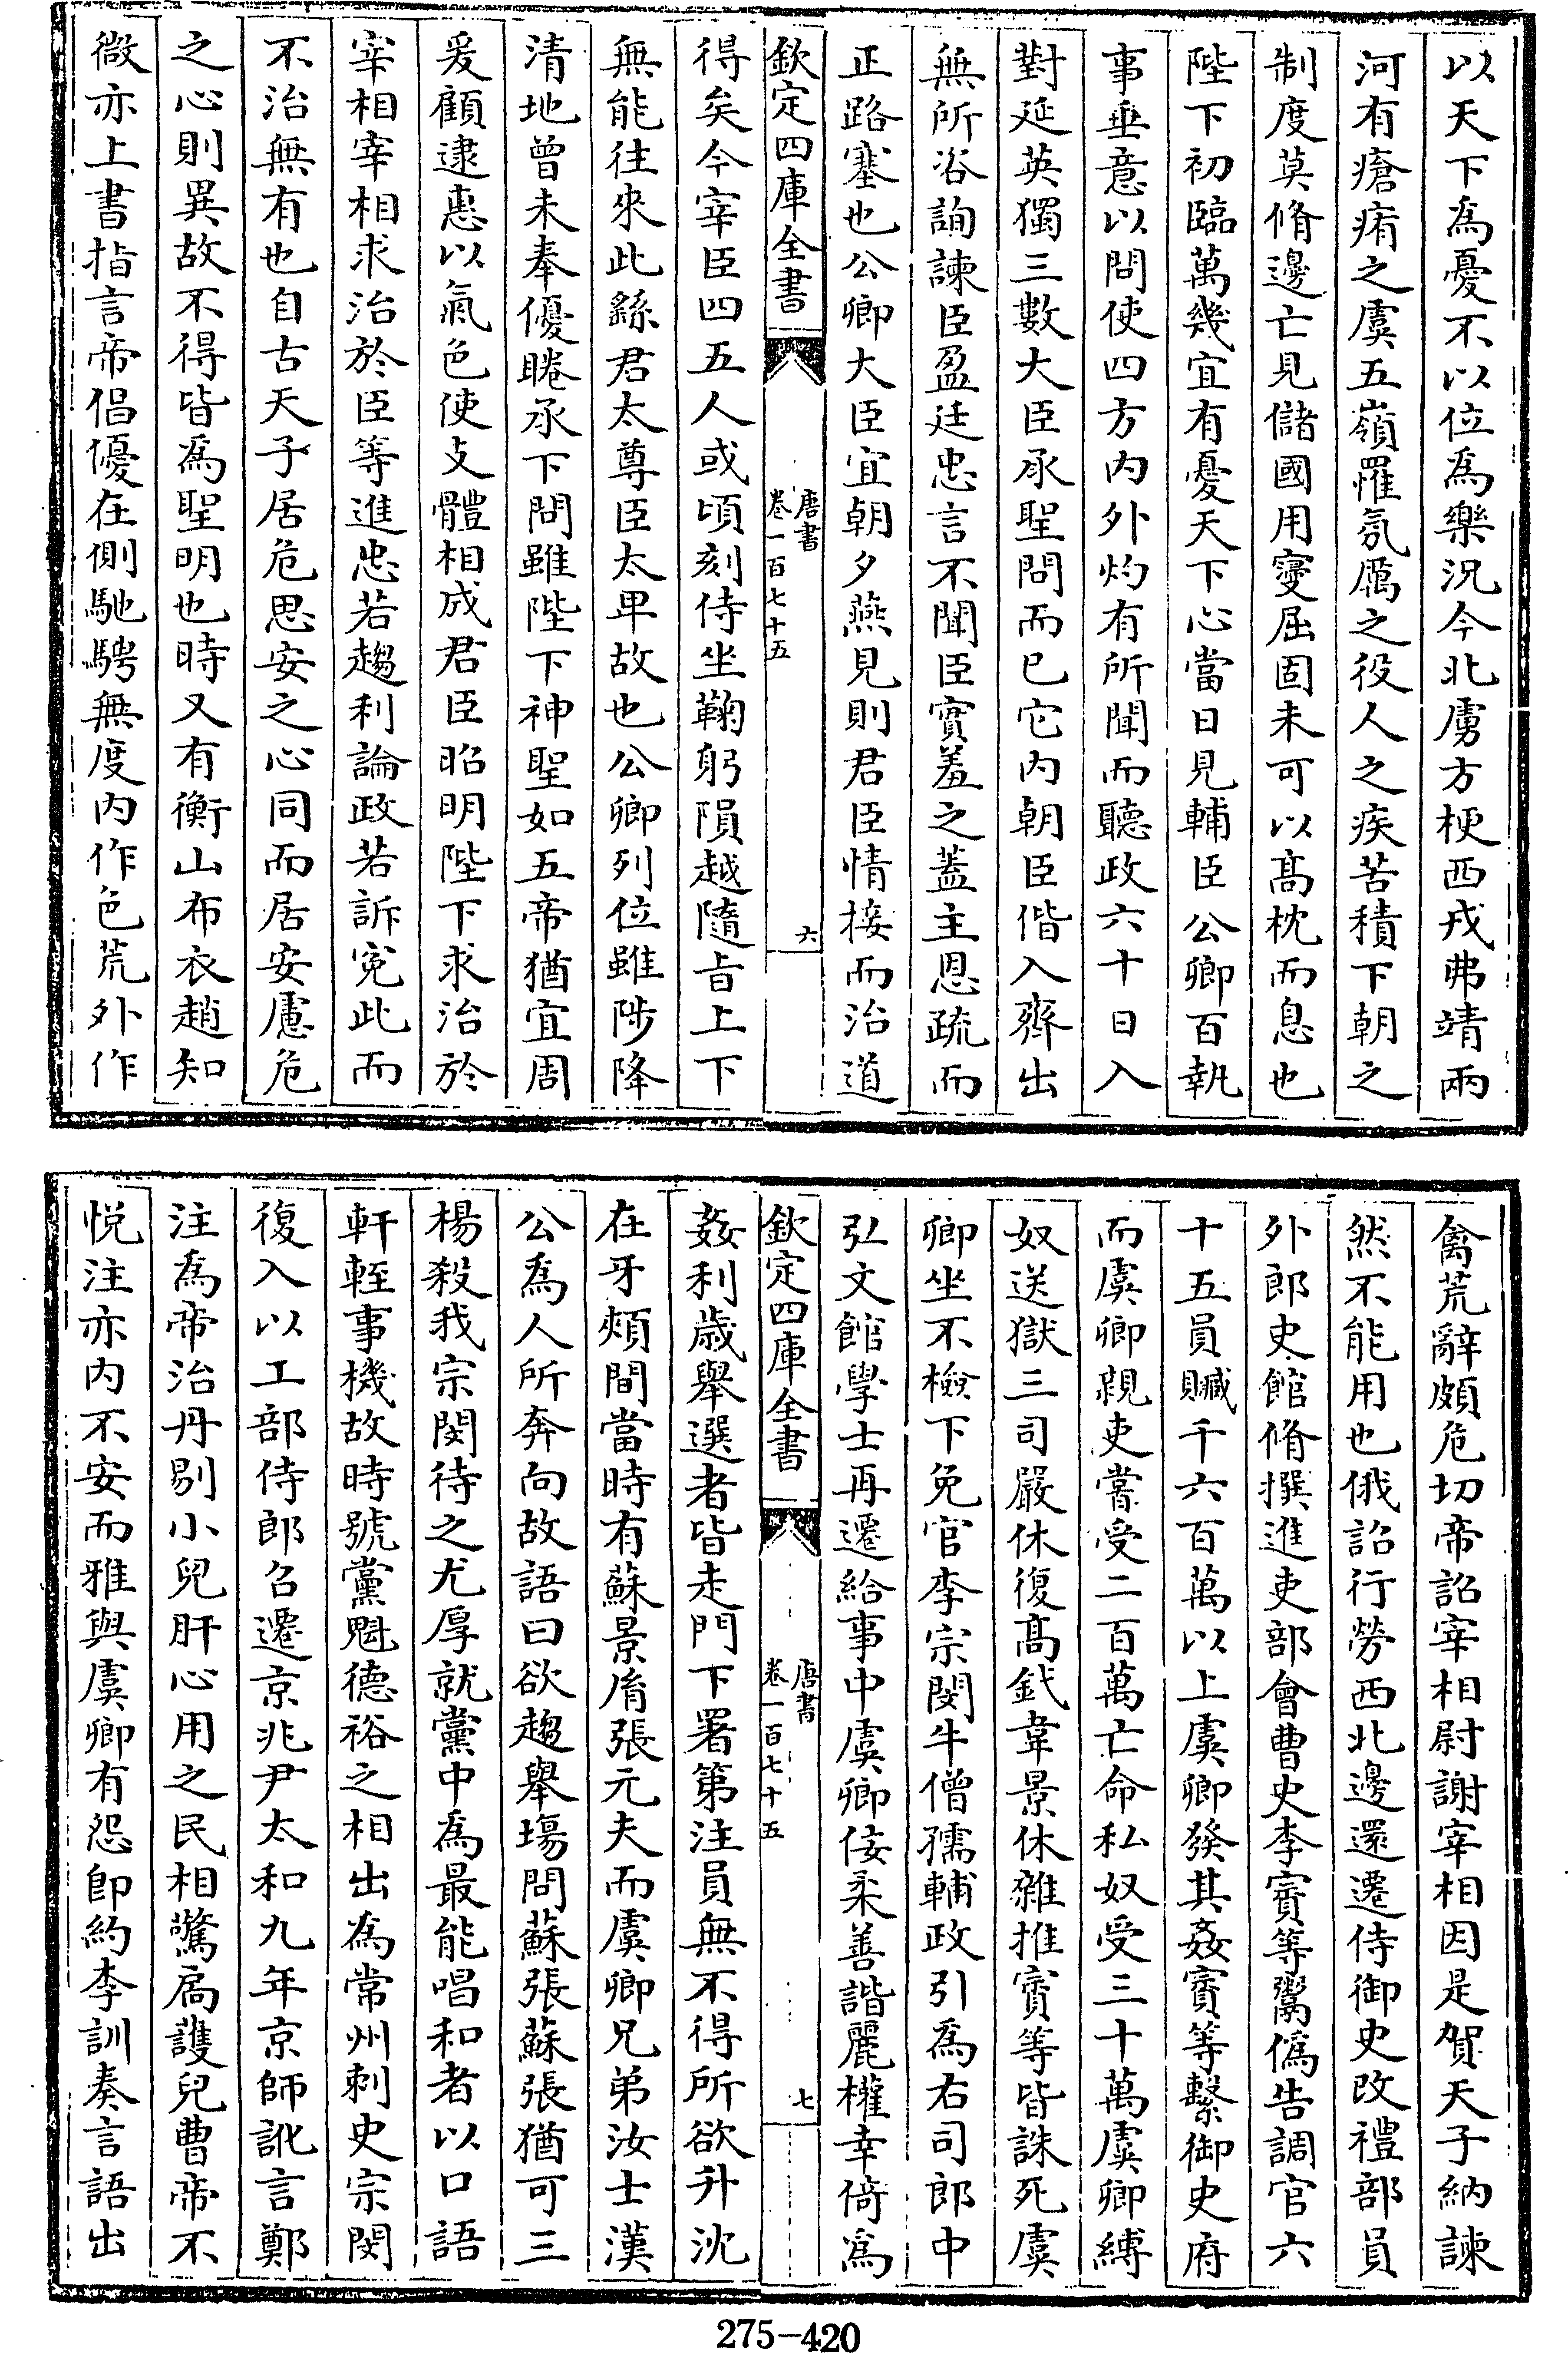 以天下爲憂不以位爲樂況今北虜方梗西戎弗靖兩
河有瘡痏之虞五嶺罹氛厲之役人之疾苦積下朝之
制度莫脩邊亡見儲國用寖屈固未可以高枕而息也
陛下初臨萬幾宜有憂天下心當日見輔臣公卿百執
事垂意以問使四方内外灼有所聞而聽政六十日入
對延英獨三數大臣承聖問而已它内朝臣偕入齊出
無所咨詢諫臣盈廷忠言不聞臣實羞之蓋主恩疏而
正路塞也公卿大臣宜朝夕燕見則君臣情接而治道
欽定四庫全書
唐書
卷一百七十五
六
得矣今宰臣四五人或頃刻侍坐鞠躬隕越隨旨上下
無能往來此繇君太尊臣太卑故也公卿列位雖陟降
清地曾未奉優睠承下問雖陛下神聖如五帝猶宜周
爰顧逮惠以氣色使支體相成君臣昭明陛下求治於
宰相宰相求治於臣等進忠若趨利論政若訴寃此而
不治無有也自古天子居危思安之心同而居安慮危
之心則異故不得皆爲聖明也時又有衡山布衣趙知
微亦上書指言帝倡優在側馳騁無度内作色荒外作
禽荒辭頗危切帝詔宰相尉謝宰相因是賀天子納諫
然不能用也俄詔行勞西北邊還遷侍御史改禮部員
外郎史館脩撰進吏部會曹史李賨等鬻僞告調官六
十五員贓千六百萬以上虞卿發其姦賨等繫御史府
而虞卿親吏嘗受二百萬亡命私奴受三十萬虞卿縛
奴送獄三司嚴休復高釴韋景休雜推賨等皆誅死虞
卿坐不檢下免官李宗閔牛僧孺輔政引爲右司郎中
弘文館學士再遷給事中虞卿佞柔善諧麗權幸倚爲
欽定四庫全書
唐書
卷一百七十五
七
姦利歲舉選者皆走門下署第注員無不得所欲升沈
在牙頰間當時有蘇景胤張元夫而虞卿兄弟汝士漢
公爲人所奔向故語曰欲趨舉塲問蘇張蘇張猶可三
楊殺我宗閔待之尤厚就黨中爲最能唱和者以口語
軒輊事機故時號黨魁德裕之相出為常州刺史宗閔
復入以工部侍郎召遷京兆尹太和九年京師訛言鄭
注爲帝治丹剔小兒肝心用之民相驚扃護兒曹帝不
悅注亦内不安而雅與虞卿有怨卽約李訓奏言語出
275-420